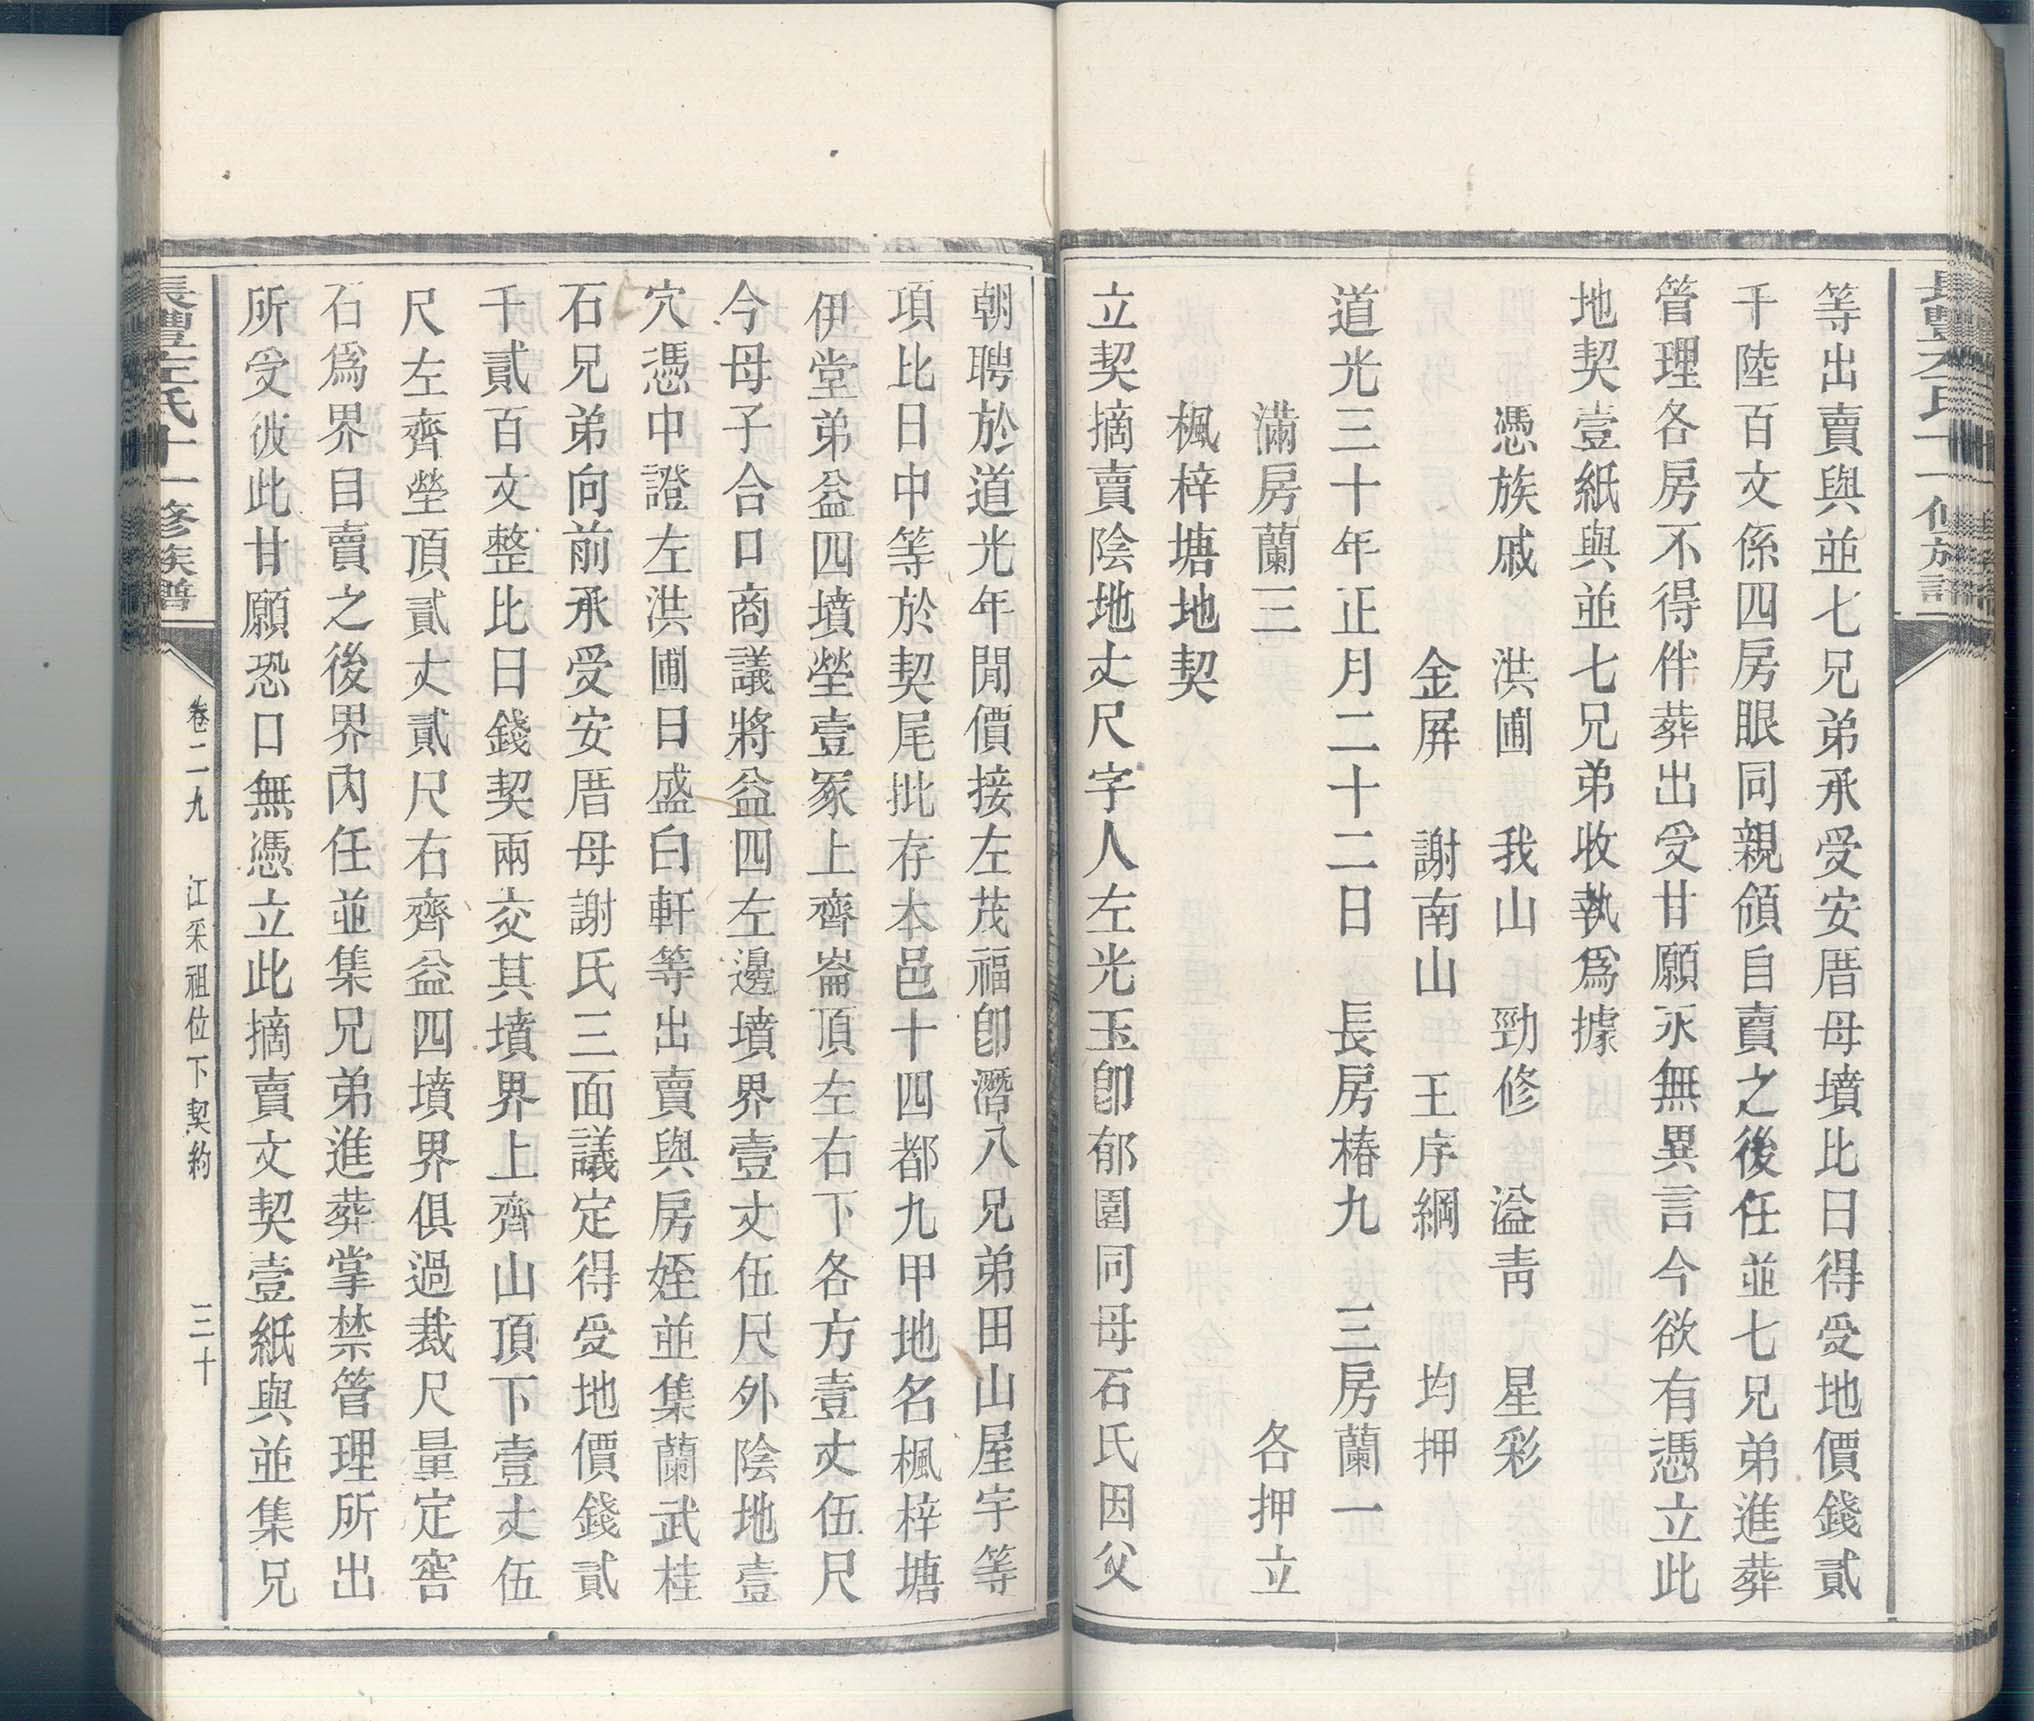 等出賣與並七兄弟承受安厝母墳比日得受地價錢貳
千陸百文係四房眼同親領自賣之後任並七兄弟進葬
管理各房不得伴葬出受甘願永無異言今欲有憑立此
地契壹紙與並七兄弟收執爲據
憑族戚 洪圃 我山 勁修 溢青 星彩
金屏 謝南山 王序綱 均押
道光三十年正月二十二日 長房椿九 三房蘭一
滿房蘭三 各押立
楓梓塘地契
立契摘賣陰地丈尺字人左光玉卽郁園同母石氏因父
朝聘於道光年閒價接左茂福卽潛八兄弟田山屋宇等
項比日中等於契尾批存本邑十四都九甲地名楓梓塘
伊堂弟益四墳塋壹冢上齊崙頂左右下各方壹丈伍尺
今母子合口商議將益四左邊墳界壹丈伍尺外陰地壹
穴憑中證左洪圃日盛白軒等出賣與房姪並集蘭武桂
石兄弟向前承受安厝母謝氏三面議定得受地價錢貳
千貳百文整比日錢契兩交其墳界上齊山頂下壹丈伍
尺左齊塋頂貳丈貳尺右齊益四墳界俱過裁尺量定窖
石爲界目賣之後界內任並集兄弟進葬掌禁管理所出
所受彼此甘願恐口無憑立此摘賣文契壹紙與並集兄
長豐左氏十一修族譜 卷二九 江采祖位下契約 三十